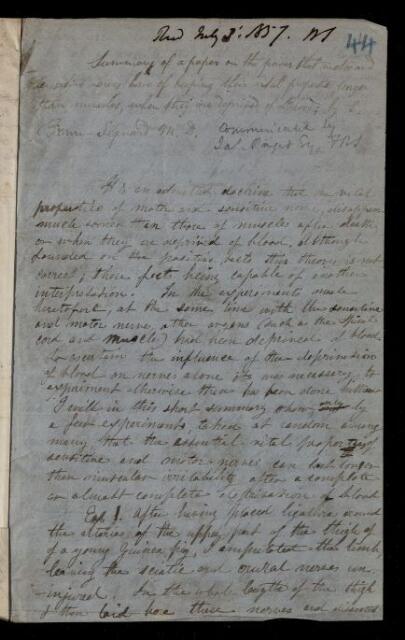 Recd July 3d. 1857. WS
44
Summary of a paper on the power that motor and
sensitive nerves have of keeping their vital properties longer
than muscles, when they are deprived of blood, by E.
Brown-Séquard M.D. Communicated by
Jas. Paget Esq. FRS
It is an admitted doctrine that the vital
properties of motor and sensitive nerves disappear
much sooner than those of muscles after death
or when they are deprived of blood. Although
founded on the positive facts this theory is not
correct, those facts being capable of another
interpretation. In the experiments made
heretofore, at the same time with the sensitive
and motor nerves, other organs (such as the spinal
cord and muscles) had been deprived of blood.
To ascertain the influence of the deprivation
of blood on nerves alone it was necessary to
experiment otherwise than has been done hitherto.
I will in this short summary show only by
a few experiments, taken at random among
many that the essential vital properties of
sensitive and motor nerves can last longer
than muscular irritability after a complete
or almost complete deprivation of blood
Exp. 1. After having placed ligatures around
the arteries of the upper part of the thigh of
of a young Guinea pig, I amputated that limb,
leaving the sciatic and crural nerves un-
injured. In the whole length of the thigh
I then laid bare these nerves and dissected